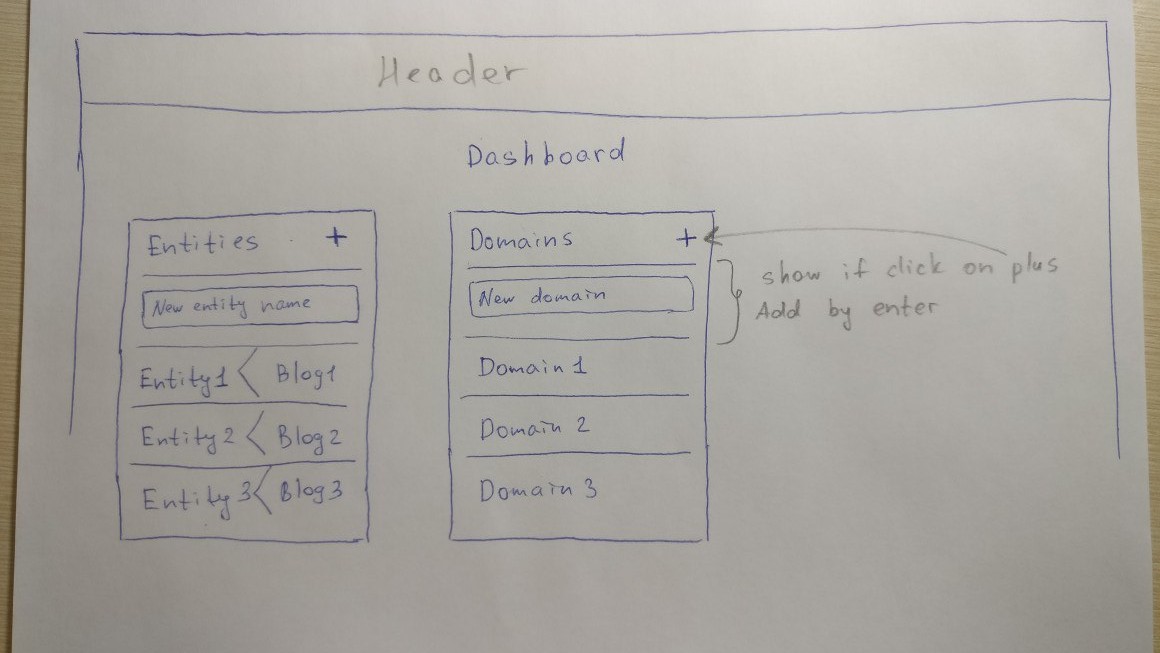 Header
Dashboard
Entities +
New entity name
Entity1 < Blog1
Entity2 < Blog2
Entity3 < Blog3
Domains +
New domain
Domain 1
Domain 2
Domain 3
show if click on plus
Add by enter